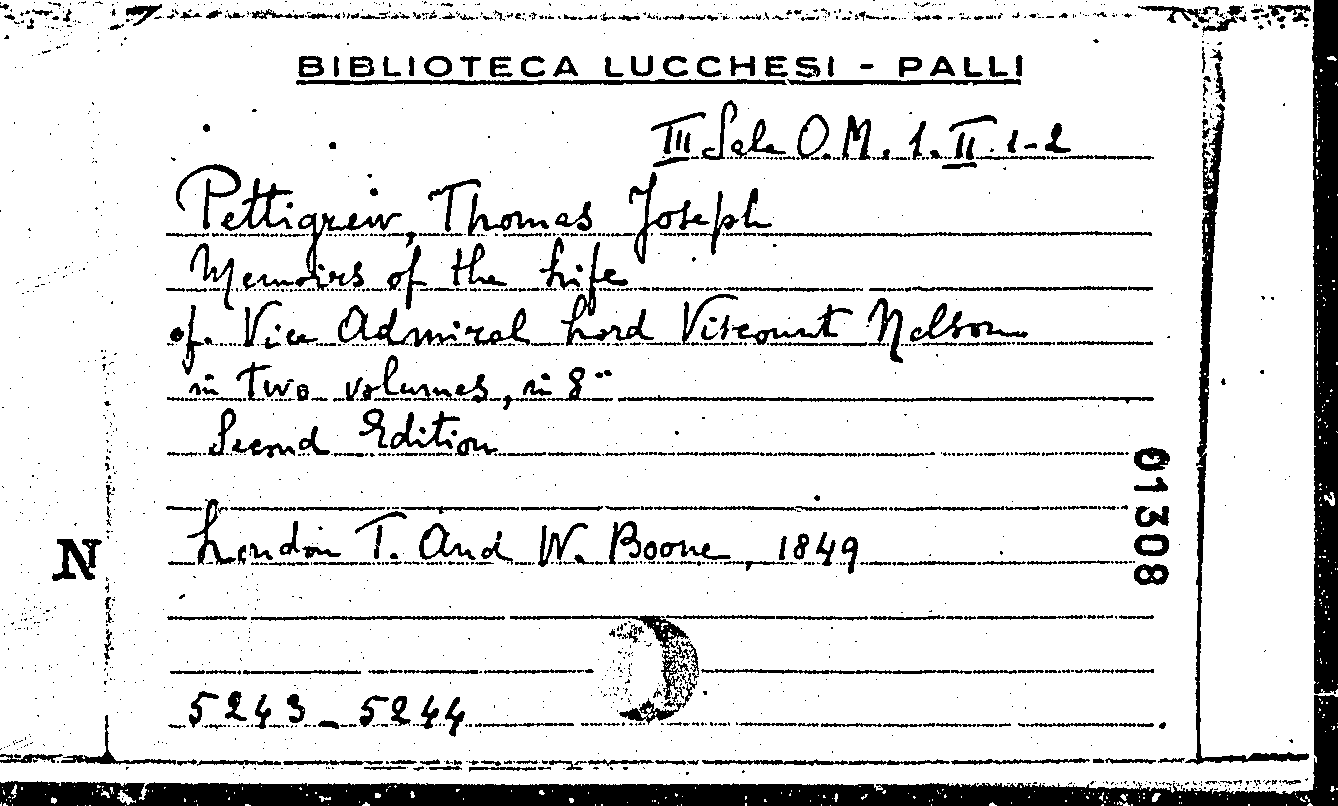 BIBLIOTECA LUCCHESI - PALLI
III Sala O.M. 1. II. 1-2
Pettigrew, Thomas Joseph
Memoirs of the Life
of. Vice Admiral Lord Viscount Nelson
in two volumes, in 8°
Second Edition
London T. And W. Boone, 1849
N
01308
5243_5244